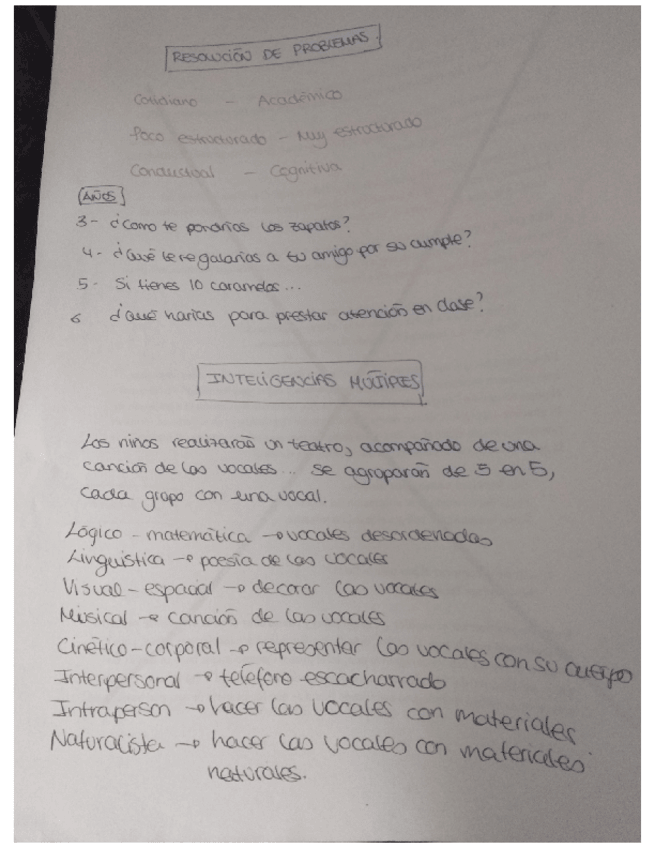 RESOLUCIÓN DE PROBLEMAS
Cotidiano - Académico
Poco estructurado - Muy estructurado
Conductual - Cognitiva
AÑOS
3- ¿Como te pondrías los zapatos?
4- ¿Qué le regalarías a tu amigo por su cumple?
5- Si tienes 10 caramelos...
6 ¿Qué harías para prestar atención en clase?
INTELIGENCIAS MÚLTIPLES
Los niños realizarán un teatro, acompañado de una
canción de las vocales... se agruparán de 5 en 5,
cada grupo con una vocal.
Lógico - matemática → vocales desordenadas
Linguística → poesía de las vocales
Visual - espacial → decorar las vocales
Músical → canción de las vocales
Cinético - corporal → representar las vocales con su cuerpo
Interpersonal → teléfono escacharrado
Intraperson → hacer las vocales con materiales
Naturalista → hacer las vocales con materiales
naturales.